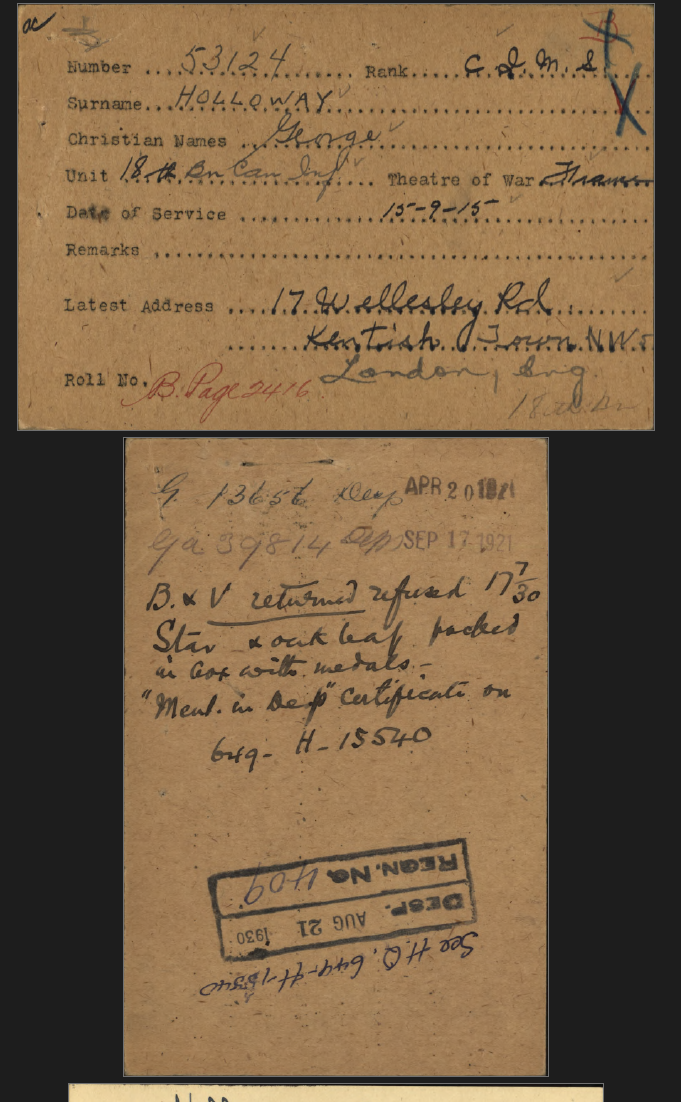 Number .... 53124 .... Rank.... C.S.M.S
Surname... HOLLOWAY
Christian Names ... George
Unit 18th Bn Can Inf .... Theatre of War France
Date of Service .... 15-9-15
Remarks ....
Latest Address .... 17 Wellesley Rd
Kentish Town NW5
London, Eng.
Roll No. B. Page 2416
18th Bn
G 13656 Desp APR 20 1921
Ga 39814 Desp SEP 17 1921
B. & V returned refused 17/7/30
Star & oak leaf packed
in box with medals.-
"Ment. in Desp" Certificate on
649- H-15540
REGN. No. 409
DESP. AUG 21 1930
See H.Q. 649-H-15540